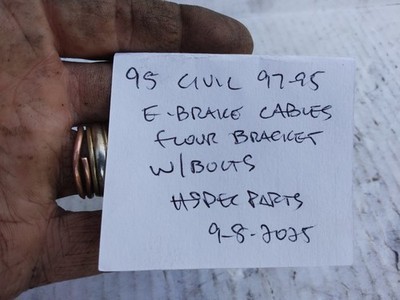 95 CIVIC 92-95
E-BRAKE CABLES
FLOUR BRACKET
W/BOLTS
H9PEC PARTS
9-8-2025